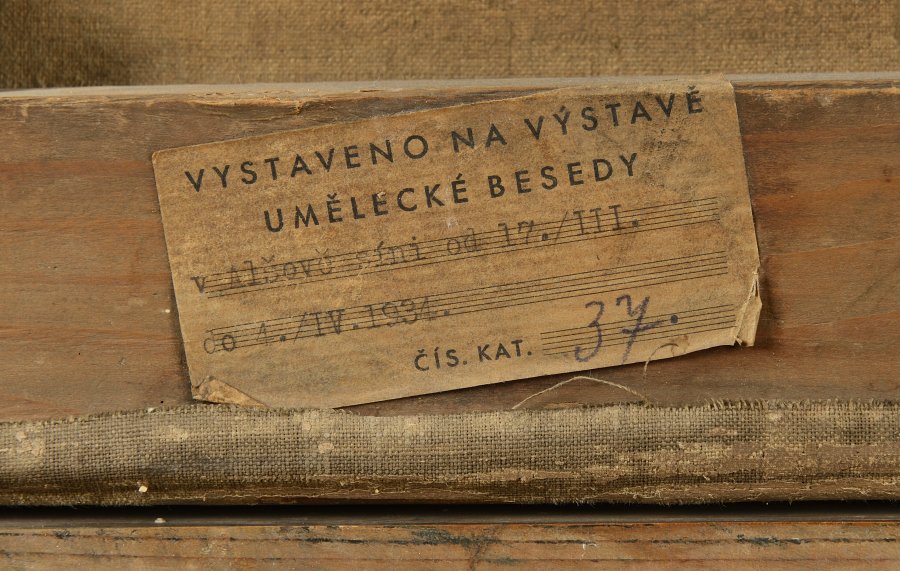 VYSTAVENO NA VÝSTAVĚ
UMĚLECKÉ BESEDY
v Alšově síni od 17./III.
do 4./IV.1934.
ČÍS. KAT. 37.